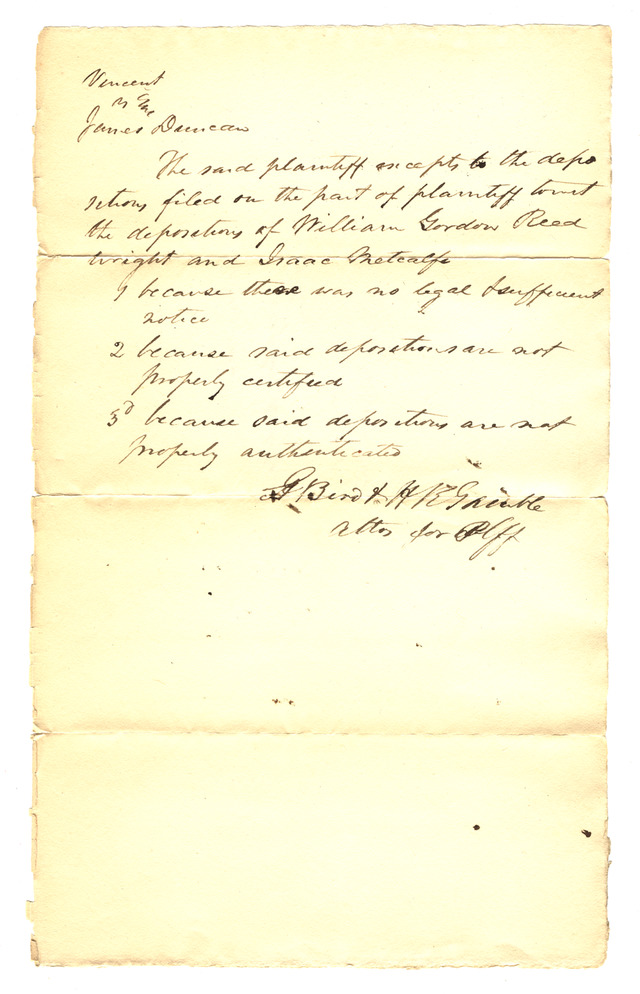 Vincent
vs
James Duncan
The said plaintiff excepts to the depo
sitions filed on the part of plaintiff towit
the depositions of William Gordon Reed
wright and Isaac Metcalfe
1 because there was no legal & sufficient
notice
2 because said depositions are not
properly certified
3d because said depositions are not
properly authenticated
G Bird & H R Gamble
attos for Plff